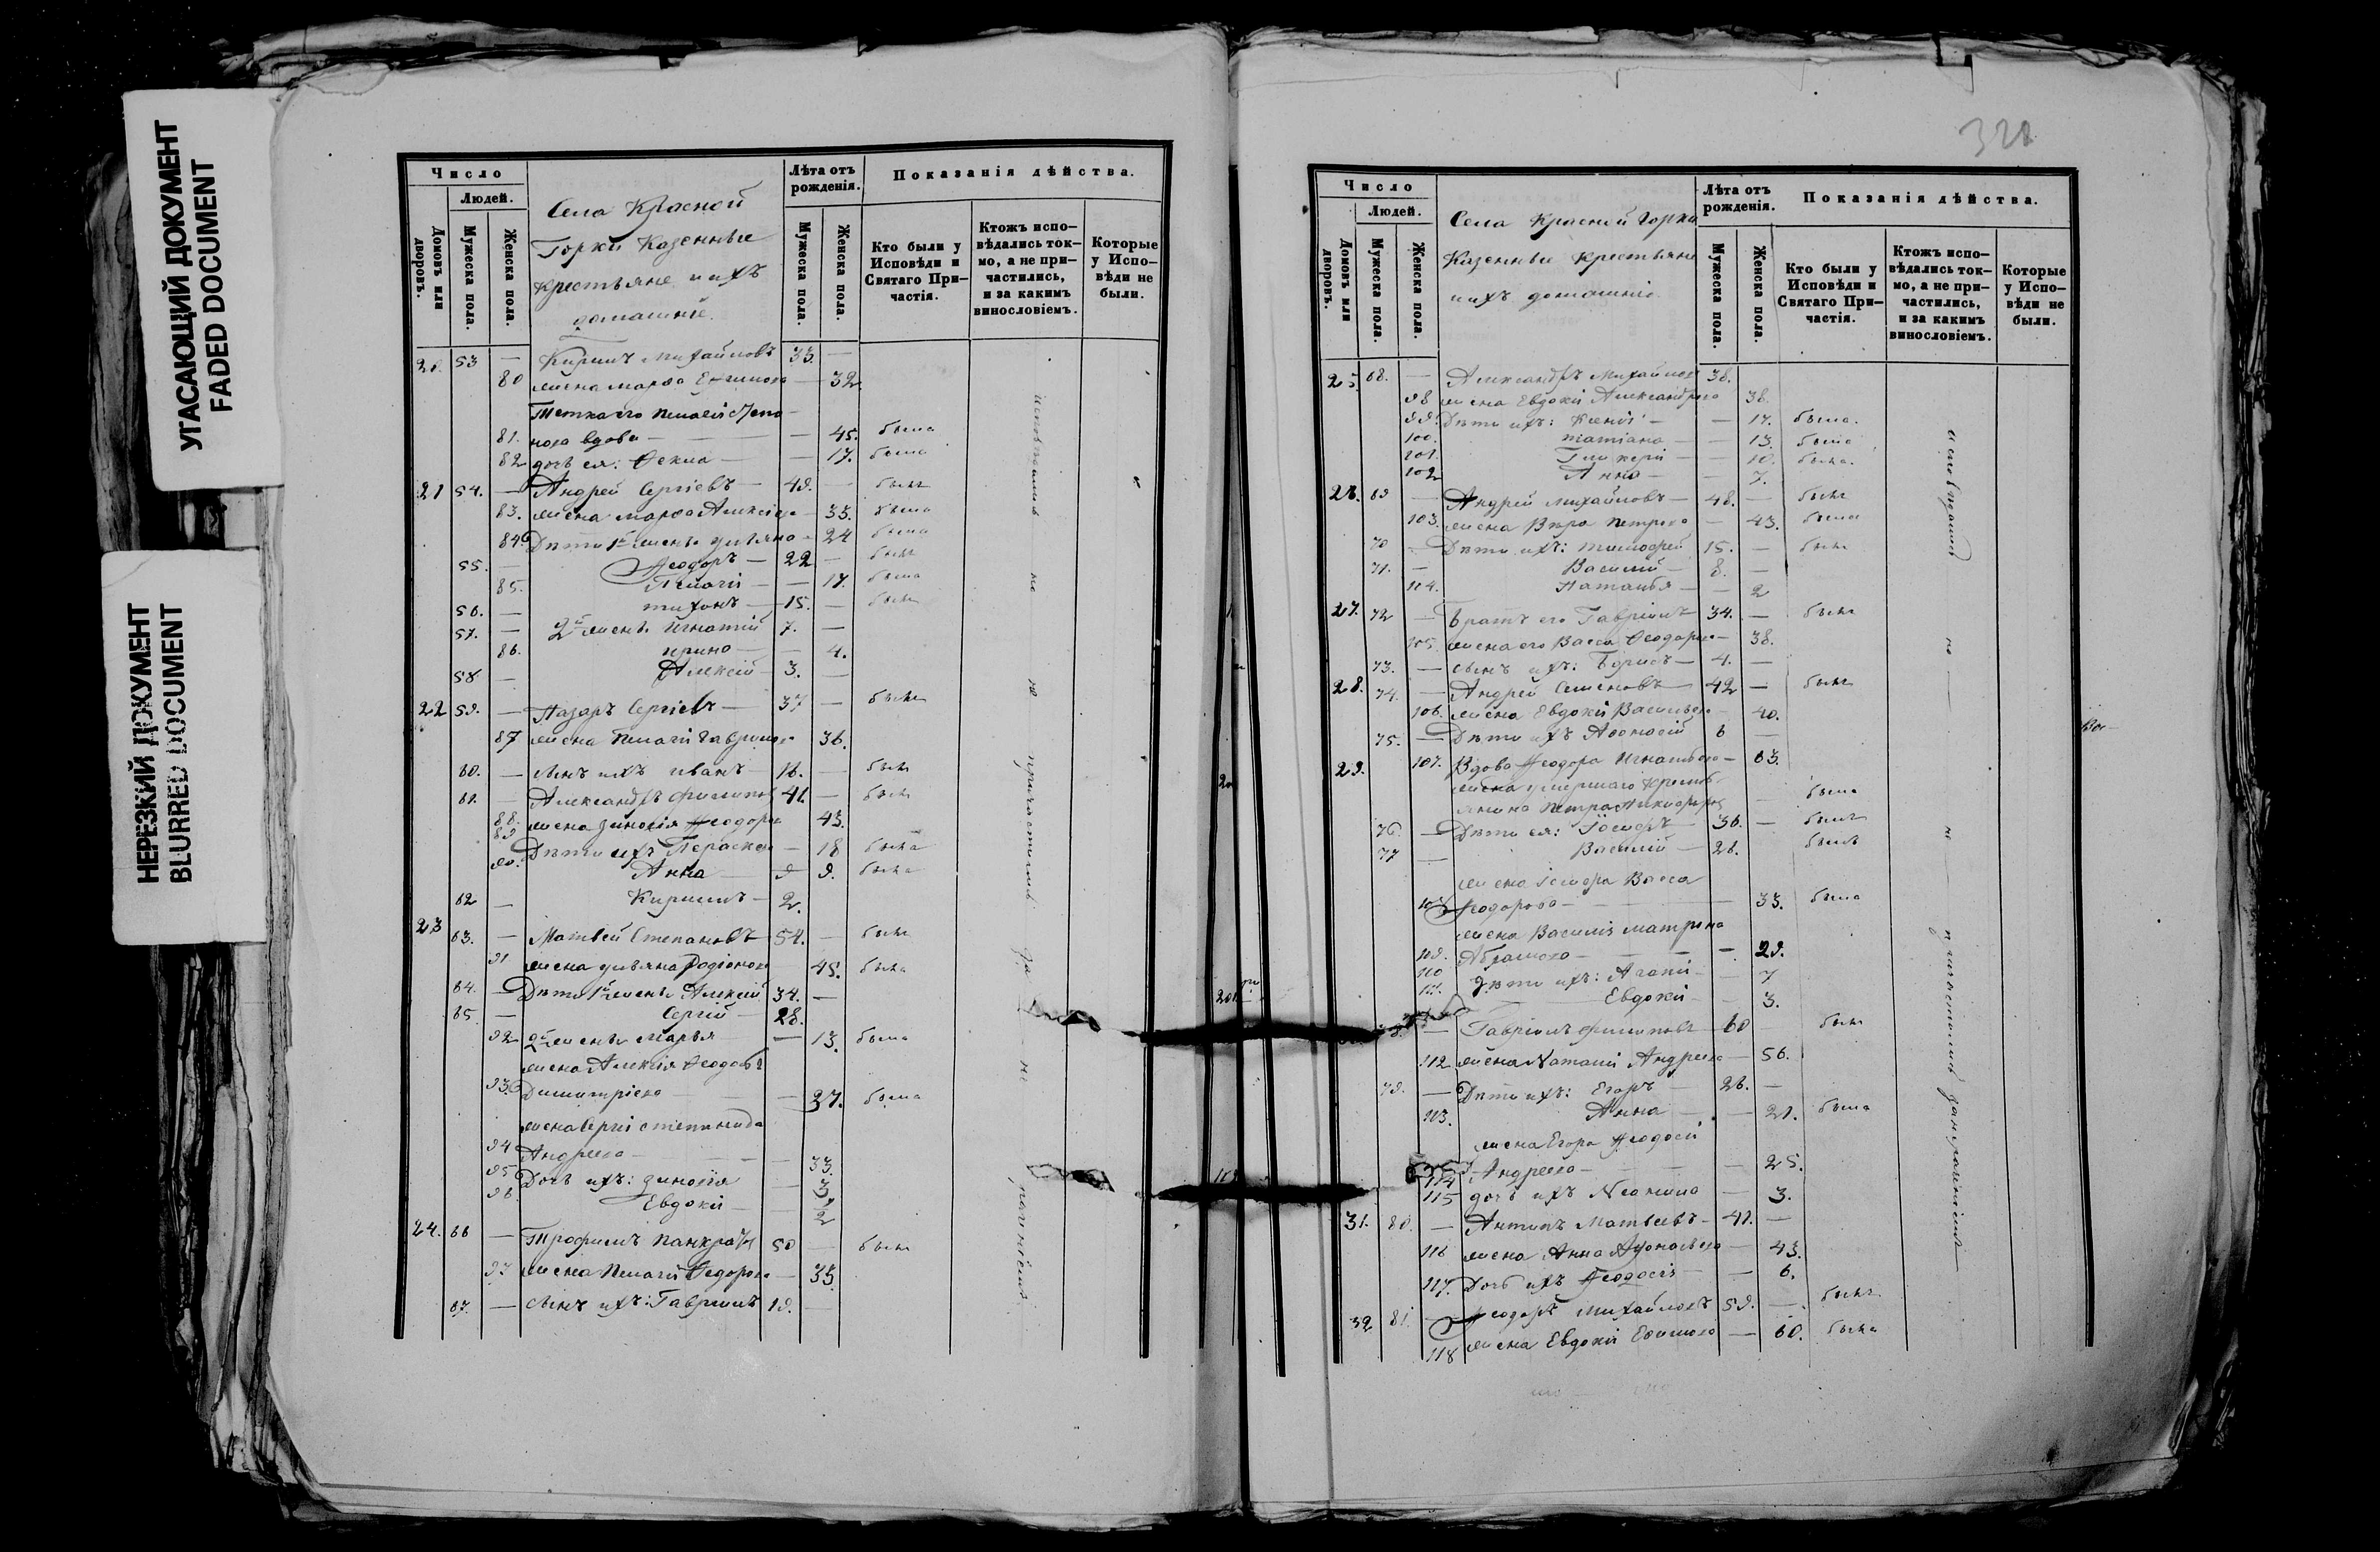 УГАСАЮЩИЙ ДОКУМЕНТ
FADED DOCUMENT
НЕРЕЗКИЙ ДОКУМЕНТ
BLURRED DOCUMENT
Число
Людей.
Домовъ или дворовъ.
Мужеска пола.
Женска пола.
Села Красной
Горки Казенные
крестьяне и ихъ
домашніе.
Лѣта отъ рожденія.
Мужеска пола.
Женска пола.
Показанія дѣйства.
Кто были у Исповѣди и Святаго При-частія.
Ктожъ испо-вѣдались ток-мо, а не при-частились, и за какимъ винословіемъ.
Которые у Испо-вѣди не были.
53 — Кирилъ Михайловъ 35. —
80 жена Марѳа — 32
Тетка его Пелагія
81. вдова — — 45. была
82 дочь ея: Ѳекла — — 17. была
21 54. — Андрей Сергіевъ — 49. — былъ
83. жена Марѳа Алексѣева — 33. была
84. Дѣти 1й жены Ульяна — 24 была
55. — Ѳеодоръ — 22 — былъ
85. Пелагія — — 17. была
56. — Тихонъ — 15. — былъ
57. — 2й жены Игнатій 7. —
86. Ирина — — 4.
58 — Алексій — 3. —
22 59. — Назаръ Сергіевъ — 37 — былъ
87 жена Пелагія Гаврилова 36.
60. — сынъ ихъ Иванъ — 16. — былъ
61. — Александръ Филиповъ 41. — былъ
88. жена Зиновія Ѳеодорова 43.
89 Дѣти ихъ Параскева — 18 была
90. Анна 9. была
62 — Кирилъ — 2.
23 63. — Матвей Степановъ 54. — былъ
91 жена Ульяна Родіонова 45. была
64. — Дѣти 1й жены Алексій 34. —
65. — Сергій — 28.
92 2й жены Марья — 13. была
жена Алексія
93 Димитріева — — 27. была
жена Сергія Степанида
94 Андреева — — — 33.
95 Дочь ихъ: Зиновія — 3.
96 Евдокія — — 1/2
24. 66 — Трофимъ Панкратовъ 50 — былъ
97 жена Пелагія Ѳедорова — 35.
67. — сынъ ихъ: Гаврилъ 19. —
исповѣдались но не причастились за не
328
Число
Людей.
Домовъ или дворовъ.
Мужеска пола.
Женска пола.
Села Красной Горки
Казенные Крестьяне
и ихъ домашніе.
Лѣта отъ рожденія.
Мужеска пола.
Женска пола.
Показанія дѣйства.
Кто были у Исповѣди и Святаго При-частія.
Ктожъ испо-вѣдались ток-мо, а не при-частились, и за какимъ винословіемъ.
Которые у Испо-вѣди не были.
25. 68. — Александръ Михайловъ 38.
98 жена Евдокія Александрова 38.
99. Дѣти ихъ: Ксенія — — 17. была.
100. Татіана — — 13. была
101. Гликерія — — 10. была.
102 Анна — — 7.
69 — Андрей Михайловъ — 48. — былъ
103. жена Вѣра Петрова — 43. была
70 — Дѣти ихъ: Тимофей 15. — былъ
71. — Василій — 8. —
104. Наталья — — 2
27. 72 — Братъ его Гавріилъ 34. — былъ
105. жена его Васса Ѳеодорова — 38.
73. — сынъ ихъ: Борисъ — 4. —
28. 74. — Андрей Семеновъ — 42 — былъ
106. жена Евдокія Васильева — 40.
75. — Дѣти ихъ Аѳонасій 6 —
29. 107. Вдова Ѳеодора Игнатьева — 63.
жена умершаго Кресть-
янина Петра Никифорова — была
76 — Дѣти ея: 36. — былъ
77 — Василій — 26. былъ
жена Васса
108 Ѳеодорова — — — 33. была
жена Василія Матрона
109. Абрамова — — — 29.
110 Дѣти ихъ: Агапія — — 7
111. Евдокія — — 3.
78. — Гавріилъ Филиповъ — 60 — былъ
112 жена Наталія Андреева — 56.
79. — Дѣти ихъ: Егоръ — 26. —
113. Анна — — 21. была
жена Егора Ѳеодосія
114 Андреева — — — 25.
115 дочь ихъ Неонила — 3.
31. 80. — Антипъ Матвеевъ — 41. —
116 жена Анна Аѳонасьева — 43.
117. Дочь ихъ Ѳеодосія — — 6.
32 81. — Ѳеодоръ Михайловъ 59. — былъ
118 жена Евдокія Ефимова — 60. была
исповѣдались но не причастились